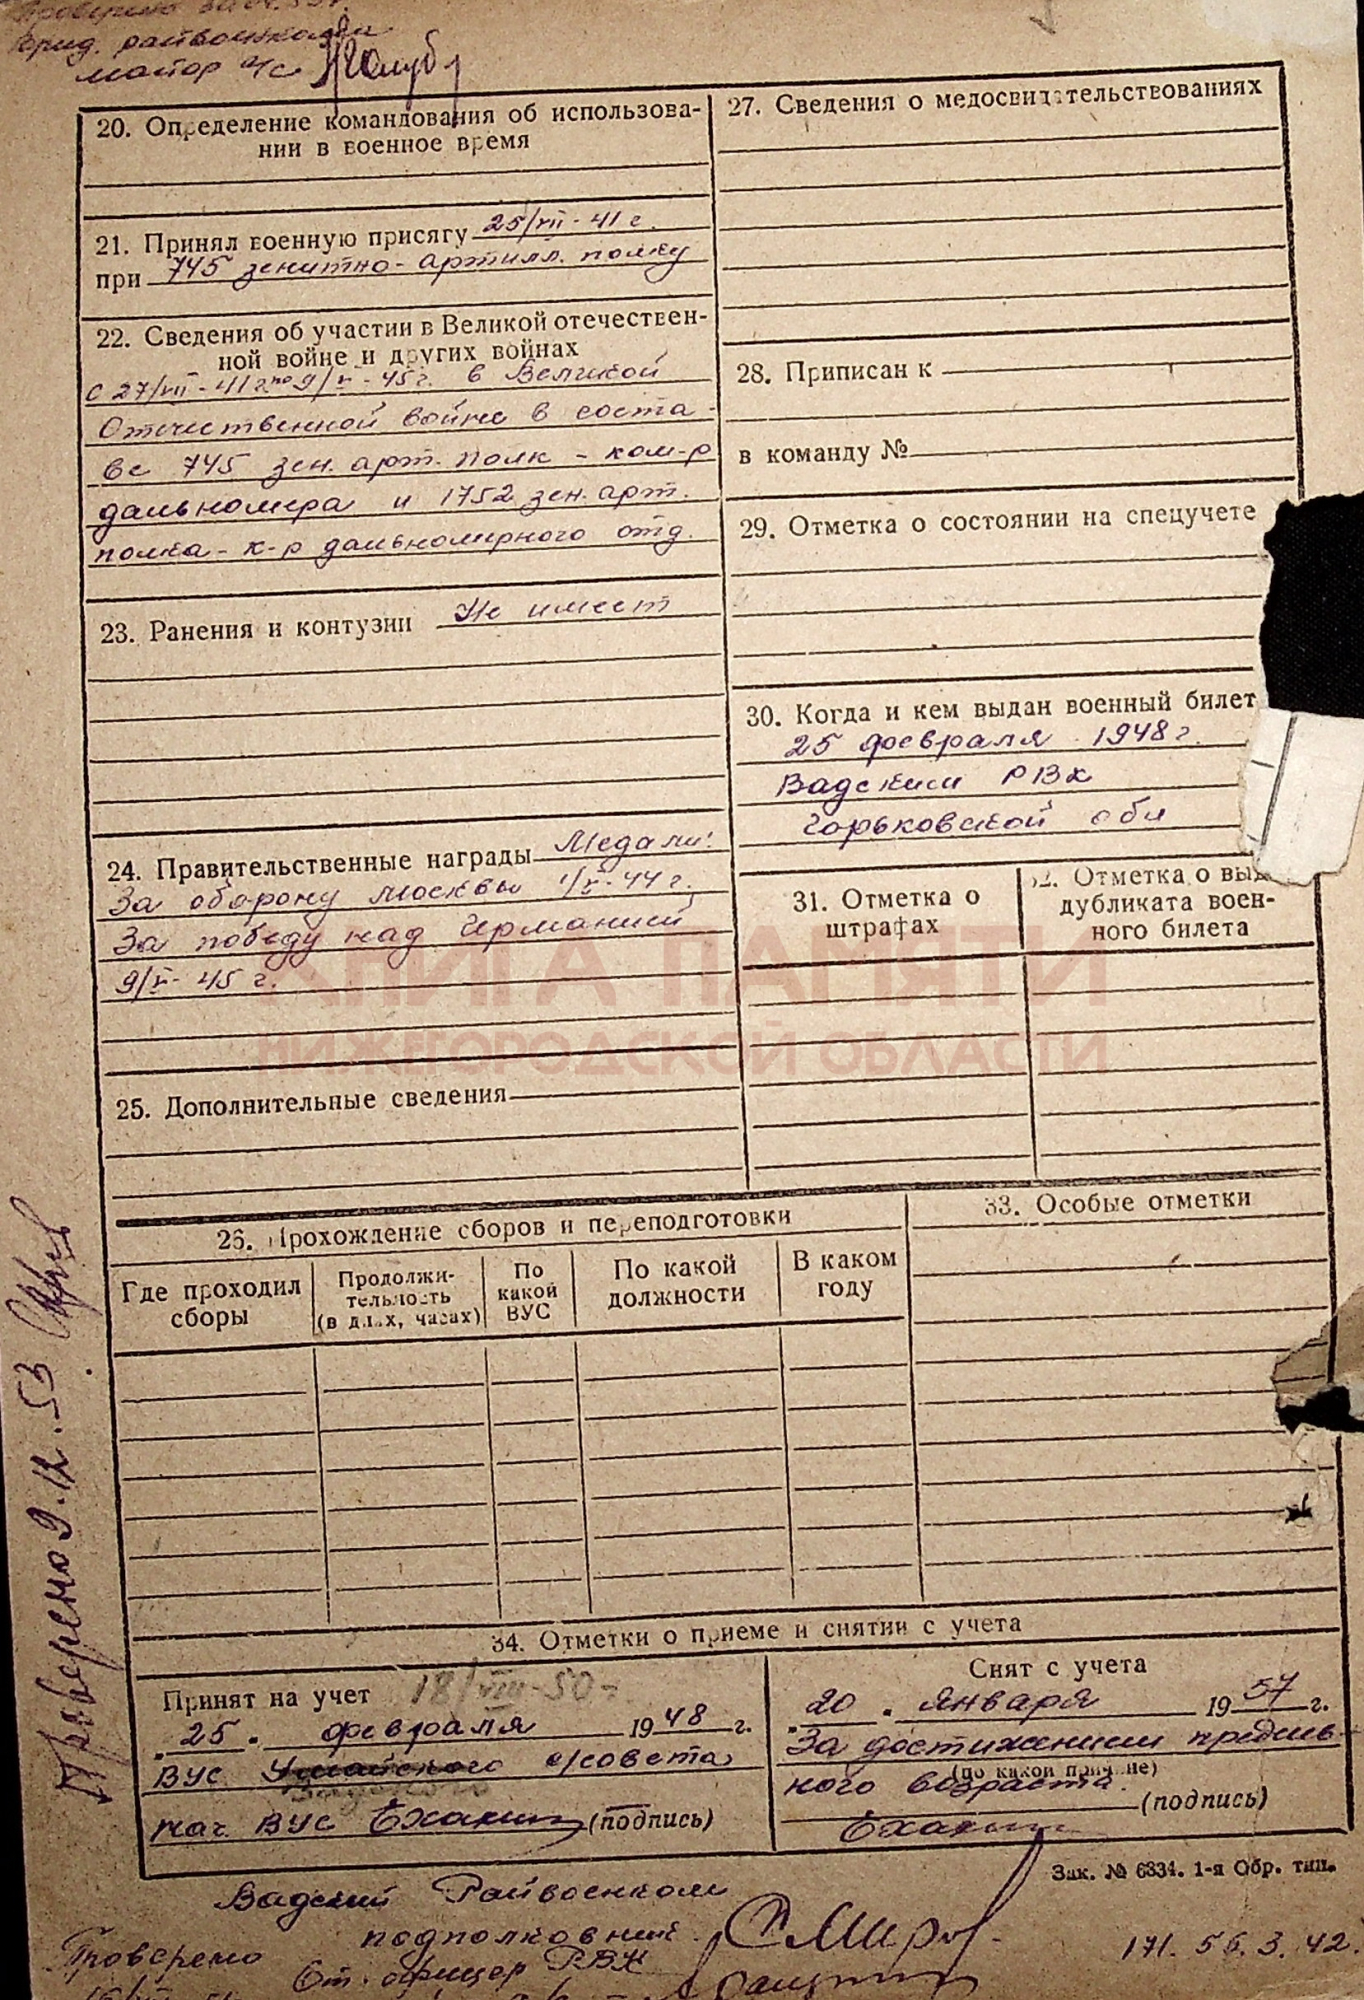 райвоенкома
майор а/с
20. Определение командования об использова-
нии в военное время
21. Принял военную присягу 25/VII-41 г.
при 745 зенитно-артилл. полку
22. Сведения об участии в Великой отечествен-
ной войне и других войнах
с 27/VII-41 г. по 9/V-45 г. в Великой
Отечественной войне в соста-
ве 745 зен. арт. полк - ком-р
дальномера и 1752 зен. арт.
полка - к-р дальномерного отд.
23. Ранения и контузии Не имеет
24. Правительственные награды Медали:
За оборону Москвы 1/V-44 г.
За победу над Германией
9/V-45 г.
25. Дополнительные сведения
27. Сведения о медосвидетельствованиях
28. Приписан к
в команду №
29. Отметка о состоянии на спецучете
30. Когда и кем выдан военный билет
25 февраля 1948 г.
Вадским РВК
Горьковской обл
31. Отметка о
штрафах
32. Отметка о выд
дубликата воен-
ного билета
КНИГА ПАМЯТИ
НИЖЕГОРОДСКОЙ ОБЛАСТИ
26. Прохождение сборов и переподготовки
Где проходил
сборы
Продолжи-
тельность
(в днях, часах)
По
какой
ВУС
По какой
должности
В каком
году
33. Особые отметки
34. Отметки о приеме и снятии с учета
Принят на учет 18/VIII-50 г
"25" февраля 1948 г.
ВУС с/совета
Нач. ВУС Ёхакин (подпись)
Снят с учета
"20" января 1957 г.
За достижением предель-
(по какой причине)
ного возраста.
(подпись)
Ёхакин
Зак. № 6334. 1-я Обр. тип.
Проверено 9.12.53
Вадский Райвоенком
подполковник
Проверено Ст. офицер РВК
171. 56. 3. 42.